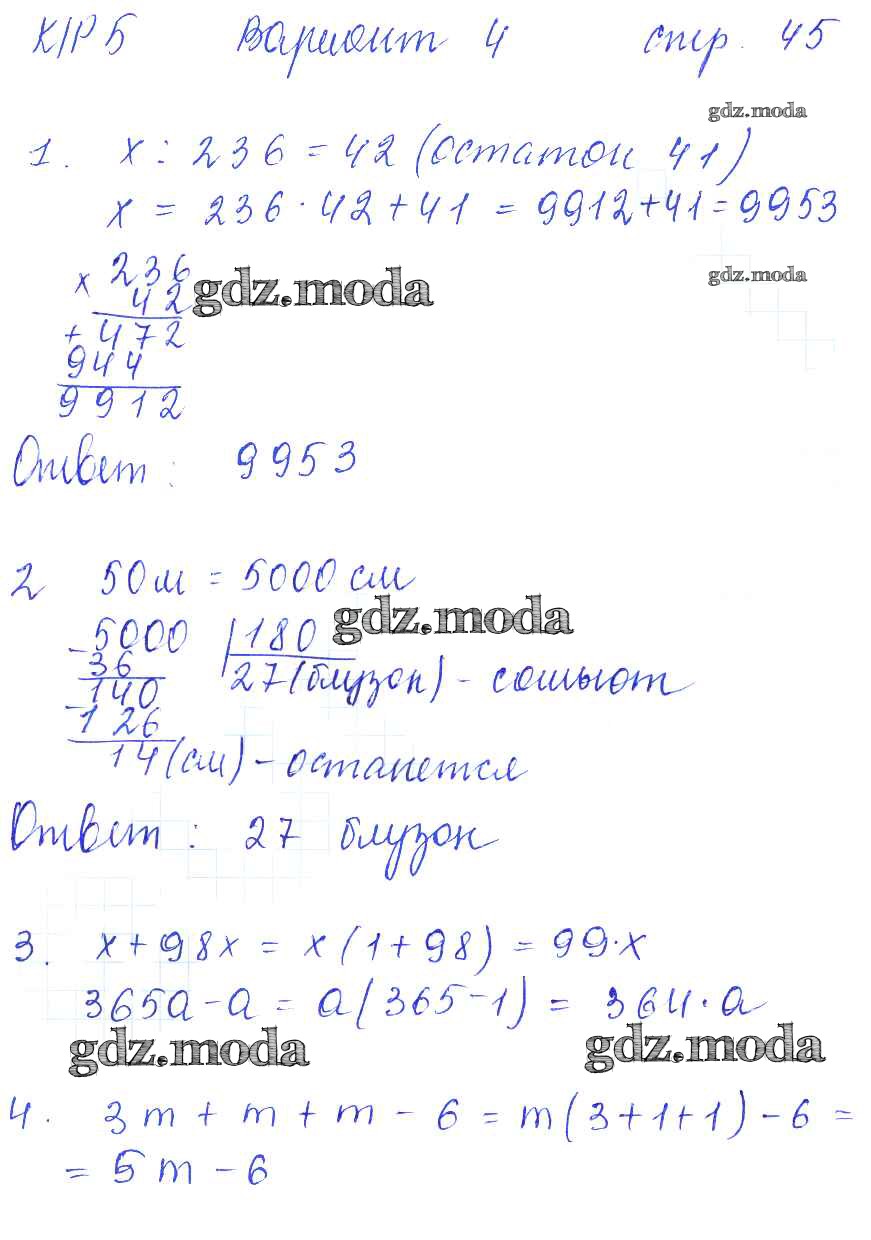 К/Р 5 Вариант 4 стр. 45
gdz.moda
1. x : 236 = 42 (остаток 41)
x = 236 · 42 + 41 = 9912 + 41 = 9953
x 236
gdz.moda
gdz.moda
42
+ 472
944
9912
Ответ : 9953
2 50 м = 5000 см
gdz.moda
- 5000 | 180
36 27 (блузок) - сошьют
- 140
126
14 (см) - останется
Ответ : 27 блузок
3. x + 98x = x (1 + 98) = 99 · x
365a - a = a (365 - 1) = 364 · a
gdz.moda gdz.moda
4. 3m + m + m - 6 = m (3 + 1 + 1) - 6 =
= 5m - 6